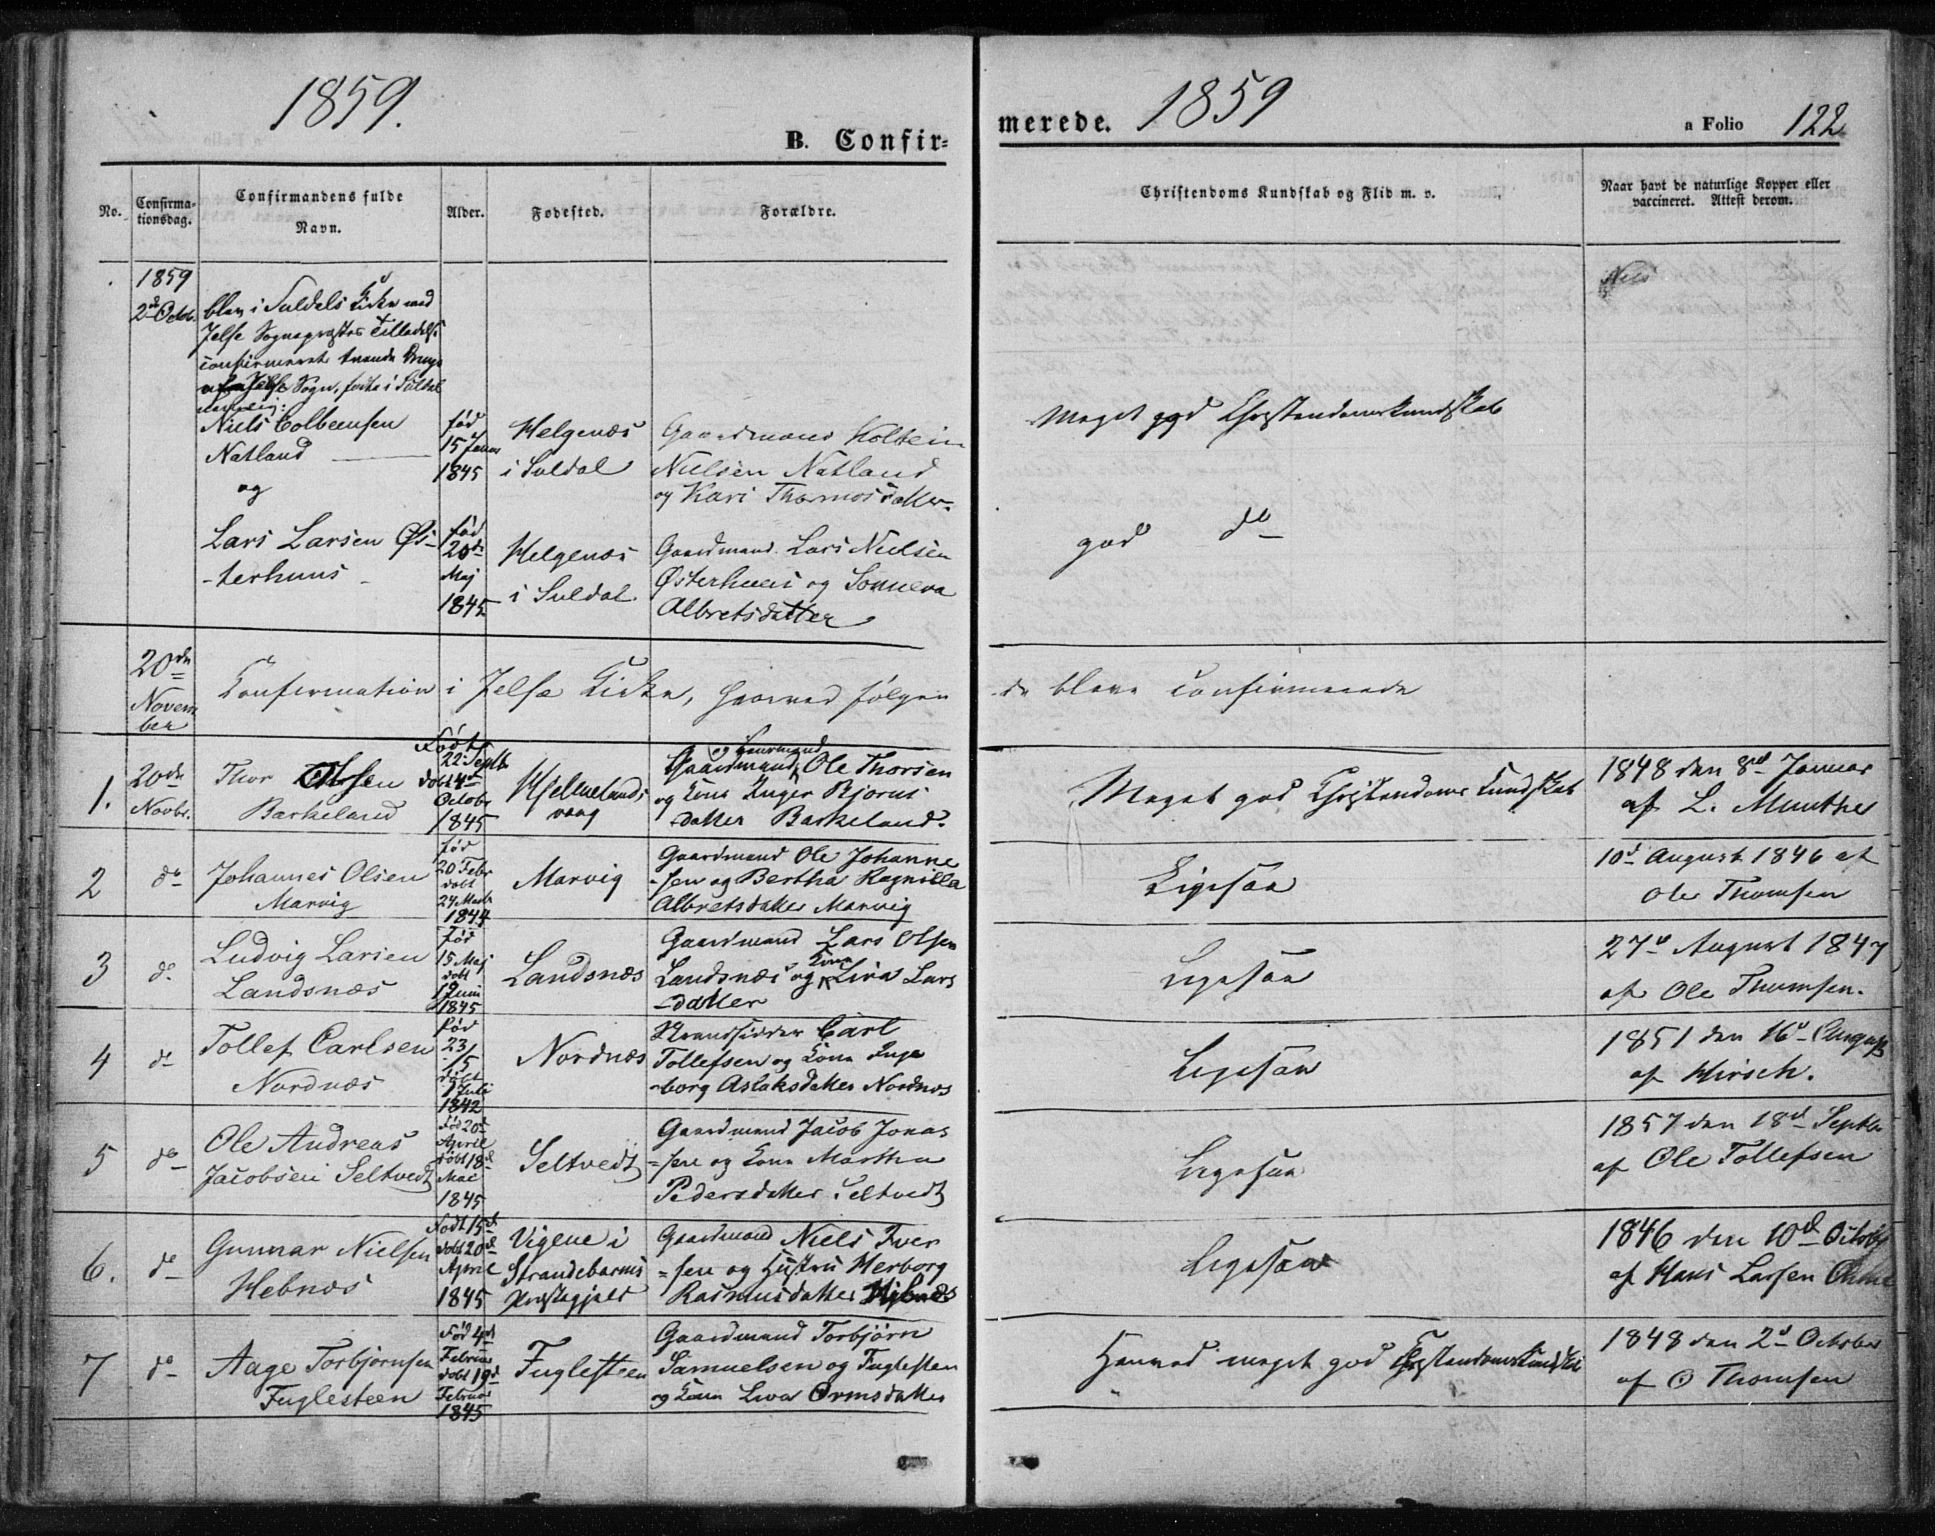 1859.
B. Confir-
merede.
1859
a Folio 122
No.
Confirma-
tionsdag.
Confirmandens fulde
Navn.
Alder.
Fødested.
Forældre.
Christendoms Kundskab og Flid m. v.
Naar havt de naturlige Kopper eller
vaccineret. Attest derom.
1859
2d Octob.
blev i Suldals Kirke med
Jelse Sognepræstes Tilladelse
confirmeret tvende Drenge
Jelse Sogn, fødte i Suldal
Niels
Niels Colbeensen
Natland
og
fød
15 Januar
1845
Helgenæs
i Suldal
Gaardmand Kolbein
Nielsen Natland
og Kari Thormosdatter.
Meget god Christendomskundskab
Lars Larsen Øs-
-terhuus
fød
20de
Maj
1845
Helgenæs
i Suldal.
Gaardmand Lars Nielsen
Østerhuus og Sonneva
Albretsdatter
god do
20de
Novem
ber
Confirmation i Jelse Kirke, hvorved følgen
de bleve confirmerede
1.
20de
Novbr.
Thor Olsen
Barkeland
Født
22 Septb.
døbt 4d
October
1845
Hjelmelands
vaag
og Gaardmand
Gaardmand Ole Thorsen
og Kone Inger Bjørns
datter Barkeland.
Meget god Christendoms Kundskab
1848 den 8d Januar
af L. Munthe
2
do
Johannes Olsen
Marvig
fød
20 Febr
døbt
24 Marts
1844
Marvig
Gaardmand Ole Johanne
-sen og Bertha Ragnilla
Albretsdatter Marvig
Ligesaa
10d August 1846 af
Ole Thomsen
3
do
Ludvig Larsen
Landsnæs
fød
15 Maj
døbt
1 Juni
1845
Landsnæs
Gaardmand Lars Olsen
Landsnæs og Kone Siva Lars
-datter
Ligesaa
27d August 1847
af Ole Thomsen.
4
do
Tollef Carlsen
Nordnæs
fød
23/
15
døbt
Juli
1842
Nordnæs
Strandsidder Carl
Tollefsen og Kone Inge
-borg Aslaksdatter Nordnæs
Ligesaa
1851 den 16d August
af Hirsch.
5
do
Ole Andreas
Jacobsen Seltvedt
Fød 20d
April
døbt 18d
Mai
1845
Seltvedt
Gaardmand Jacob Jonas
=sen og Kone Martha
Pedersdatter Seltvedt
Ligesaa
1857 den 18d Septbr
af Ole Tollefsen
6.
do
Gunnar Nielsen
Hebnæs
Født 15d
døbt 20d
April
1845
Vigene i
Strandebarms
Præstegjeld
Gaardmand Niels Iver
=sen og Hustru Herborg
Rasmusdatter Hebnæs
Ligesaa
1846 den 10d October
af Hans Larsen
7
do
Aage Torbjørnsen
Fuglesteen
Fød 4d
Februar
døbt 19d
Februar
1845
Fuglesteen
Gaardmand Torbjørn
Samuelsen og Fuglesteen
og Kone Siva Ormsdatter
Henved meget god Christendomskundskab
1848 den 2d October
af O Thomsen